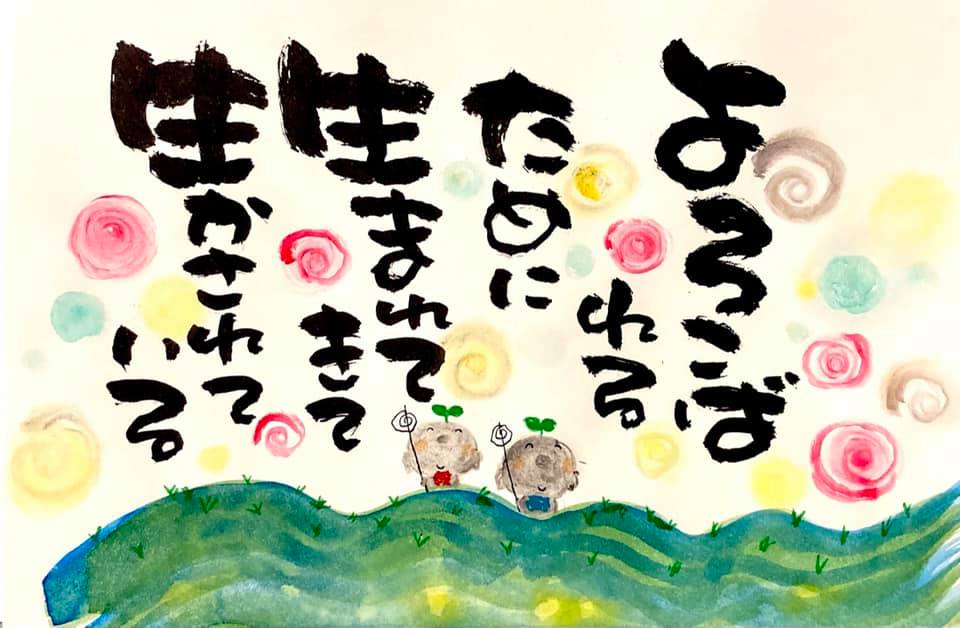 よろこば
れる
ために
生まれて
きて
生かされて
いる